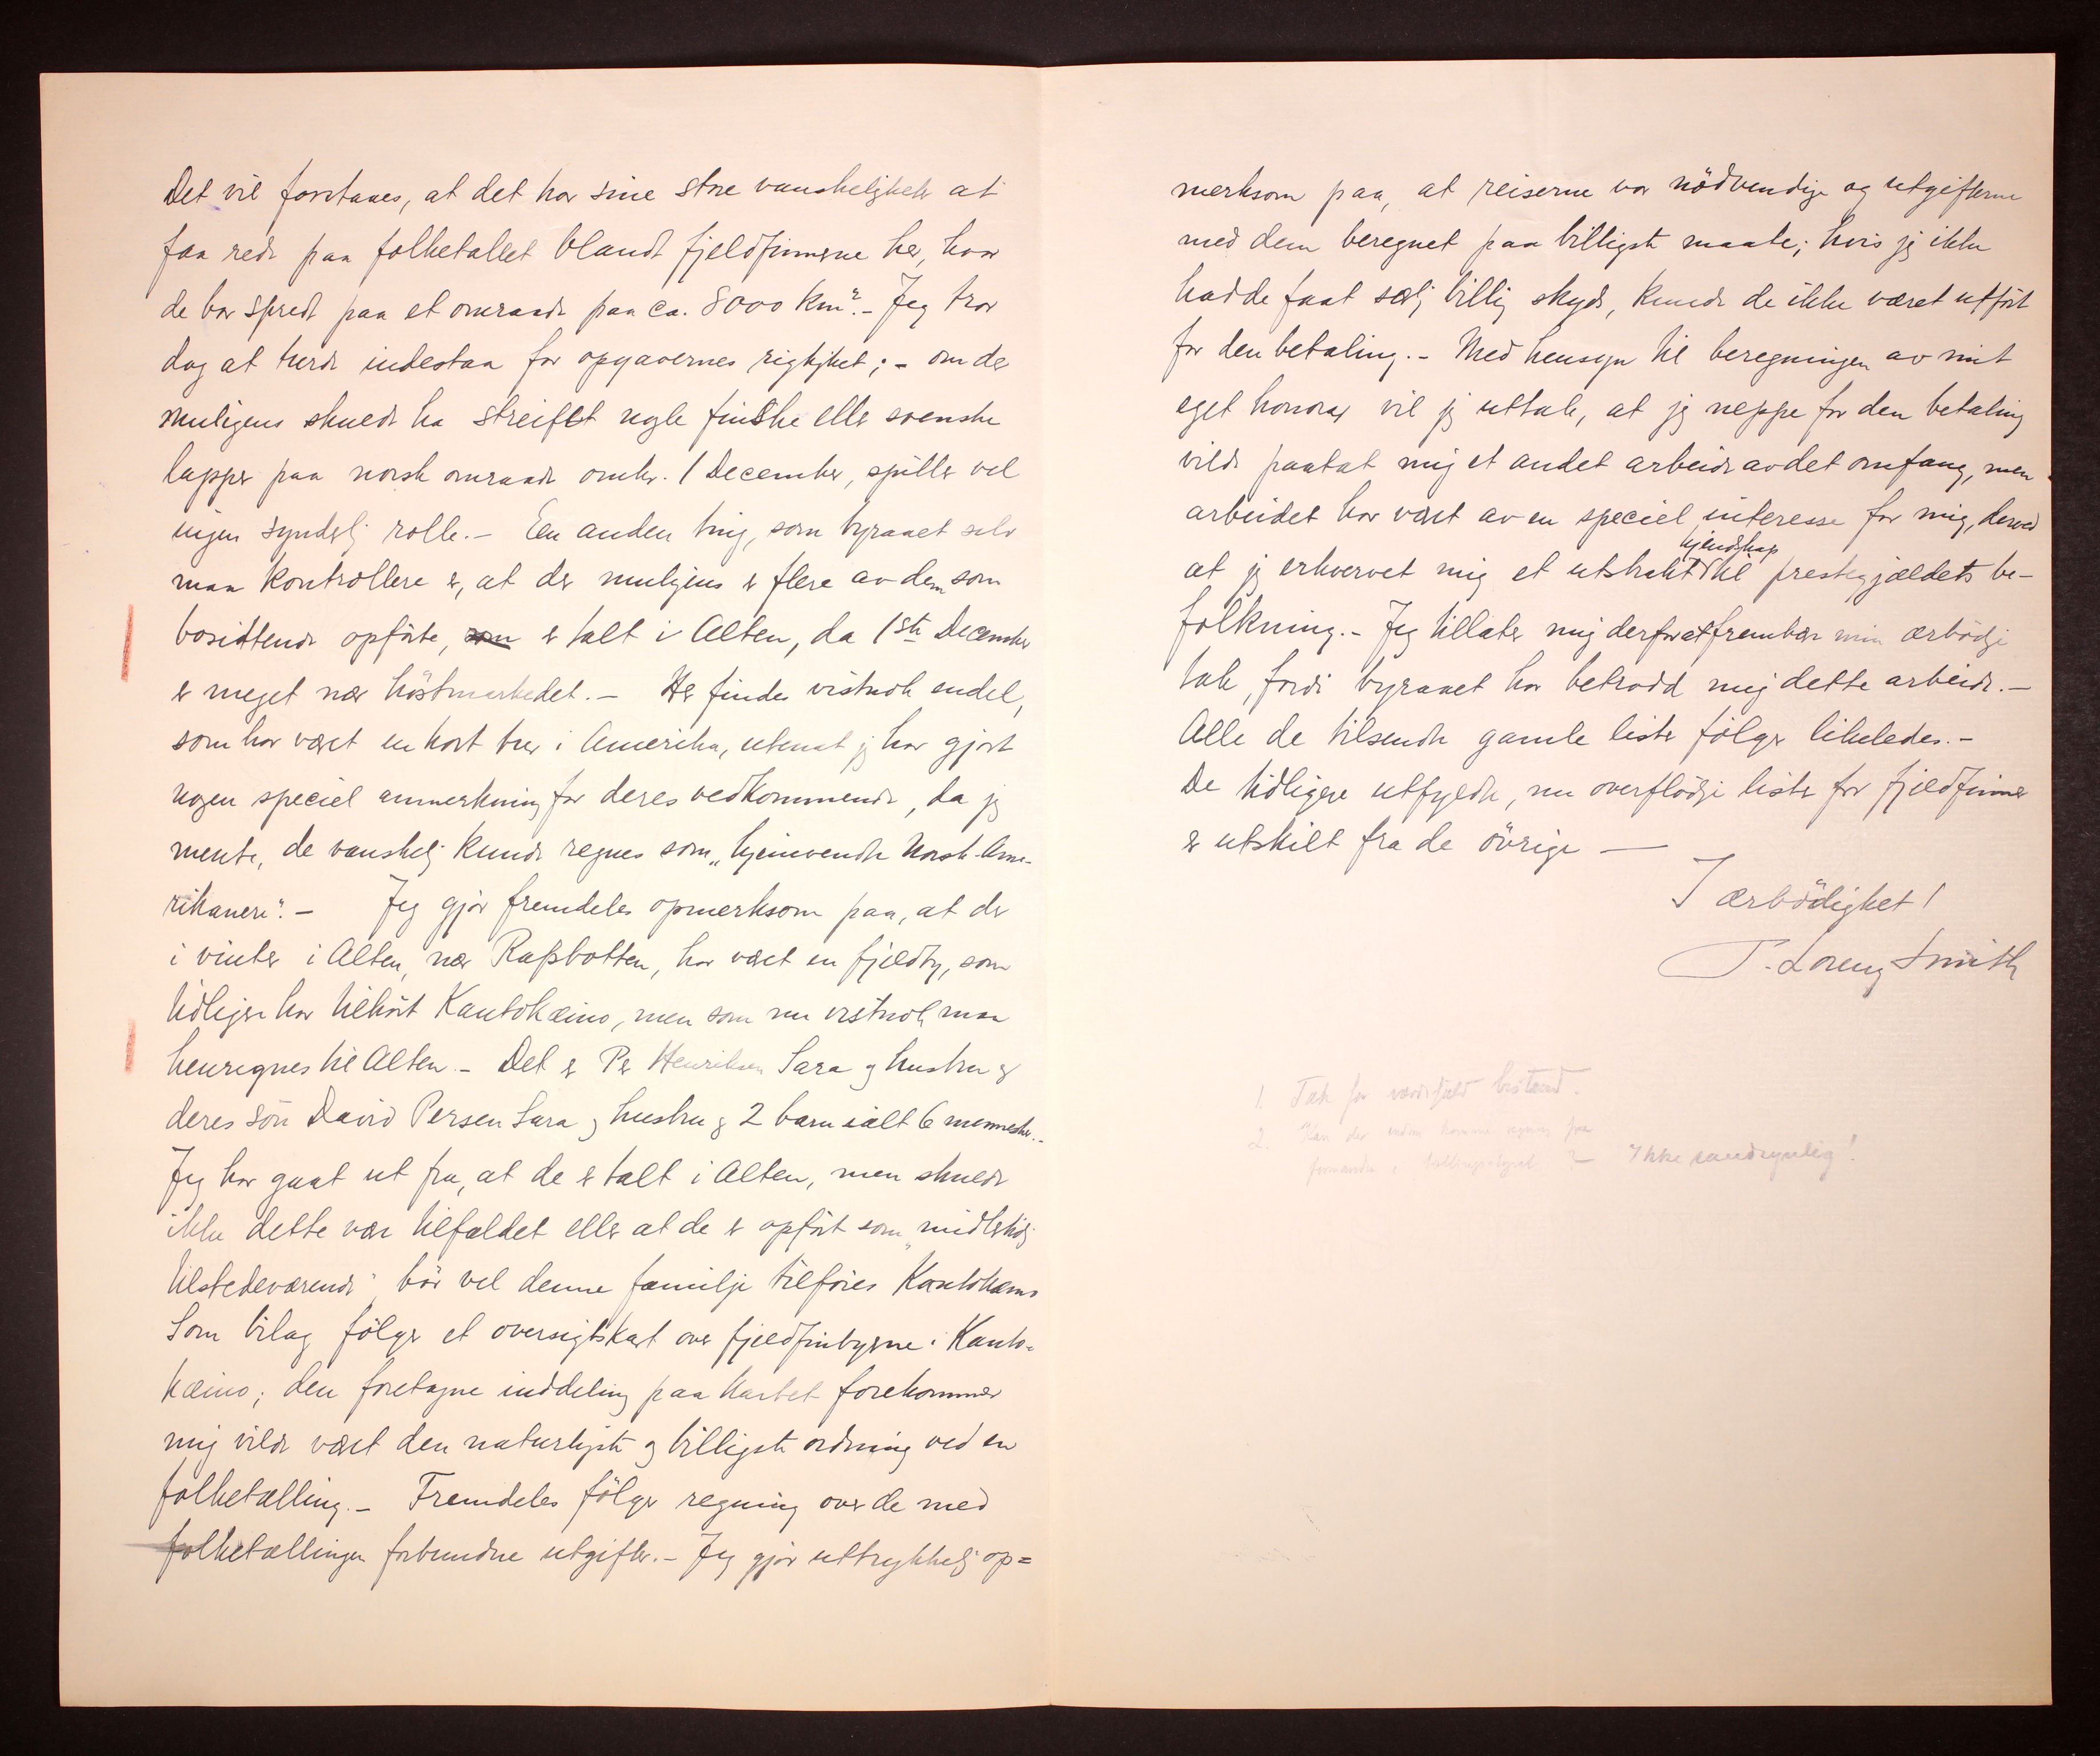 Det vil forstaaes, at det har sine store vanskeligheter at
faa rede paa folketallet blandt fjeldfinnerne her, hvor
de bor spredt paa et omraade paa ca. 8000 Km². - Jeg tror
dog at turde indestaa for opgavernes rigtighet; - om der
muligens skulde ha streifet nogle finske eller svenske
lapper paa norsk omraade omkr. 1 December, spiller vel
ingen synderlig rolle. - Een anden ting, som byraaet selv
maa kontrollere er, at der muligens er flere av dem som
bosittende opförte, er talt i Alten, da 1ste December
er meget nær höstmarkedet. - Her findes vistnok endel,
som har været en kort tur i Amerika, utenat jeg har gjort
nogen speciel anmerkning for deres vedkommende, da jeg
mente, de vanskelig kunde regnes som „hjemvendte Norsk-Ame-
rikanere". - Jeg gjør fremdeles opmerksom paa, at der
i vinter i Alten, nær Rafsbotten, har været en fjeldby, som
tidligere har tilhört Kautokæino, men som nu vistnok maa
henregnes til Alten. - Det er Per Henriksen Sara og hustru og
deres sön David Persen Sara og hustru og 2 barn ialt 6 mennesker. -
Jeg har gaat ut fra, at de er talt i Alten, men skulde
ikke dette være tilfældet eller at de er opfört som „midlertidig
tilstedeværende" bör vel denne familje tilföies Kautokæino
Som bilag fölger et oversigtskart over fjeldfinbyerne i Kauto-
kæino; den foretagne inddeling paa kartet forekommer
mig vilde været den naturligste og billigste ordning ved en
folketælling. - Fremdeles fölger regning over de med
folketællingen forbundne utgifter. - Jeg gjör uttrykkelig op=
merksom paa, at reiserne var nödvendige og utgifterne
med dem beregnet paa billigste maate; hvis jeg ikke
hadde faat særlig billig skyds, kunde de ikke været utfört
for den betaling. - Med hensyn til beregningen av mit
eget honorar vil jeg uttale, at jeg neppe for den betaling
vilde paatat mig et andet arbeide av det omfang, men
arbeidet har været av en speciel interesse for mig, derved
at jeg erhvervet mig et utstrakt kjendskap til prestegjældets be-
folkning. - Jeg tillater mig derfor at frembære min ærbödige
tak, fordi byraaet har betrodd mig dette arbeide. -
Alle de tilsendte gamle lister fölger likeledes. -
De tidligere utfyldte, nu overflödige lister for fjeldfinner
er utskilt fra de övrige —
I ærbödighet!
P. Lorenz Smith
1. Tak for værdifuld bistand.
2. Kan der endnu komme regning fra
formanden i tællingsstyret? - Ikke sandsynlig!